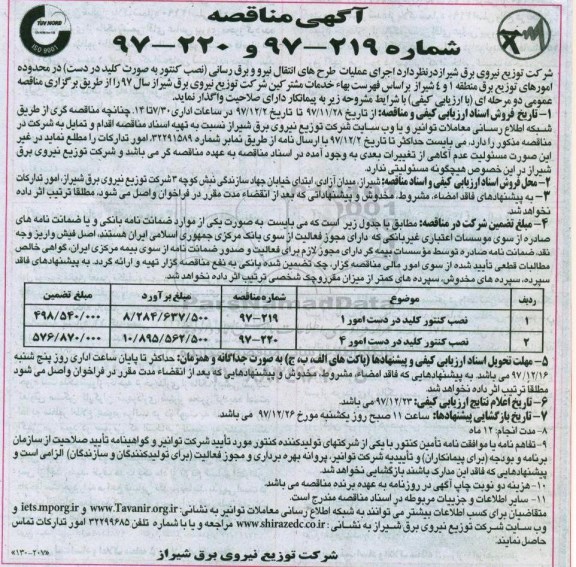 آگهی مناقصه
شماره ۲۱۹-۹۷ و ۲۲۰-۹۷
TÜV NORD
ISO 9001
شرکت توزیع نیروی برق شیراز درنظر دارد اجرای عملیات طرح های انتقال نیرو و برق رسانی (نصب کنتور به صورت کلید در دست) در محدوده
امورهای توزیع برق منطقه ۱ و ٤ شیراز براساس فهرست بهاء خدمات مشترکین شرکت توزیع نیروی برق شیراز سال ۹۷ را از طریق برگزاری مناقصه
عمومی دو مرحله ای (با ارزیابی کیفی) با شرایط مشروحه زیر به پیمانکار دارای صلاحیت واگذار نماید.
۱- تاریخ فروش اسناد ارزیابی کیفی و مناقصه: از تاریخ ۹۷/۱۱/۲۸ تا تاریخ ۹۷/۱۲/۲ در ساعات اداری ۷/۳۰ تا ۱۴. چنانچه مناقصه گری از طریق
شبکه اطلاع رسانی معاملات توانیر و یا وب سایت شرکت توزیع نیروی برق شیراز نسبت به تهیه اسناد مناقصه اقدام و تمایل به شرکت در
مناقصه مذکور را دارد، می بایست حداکثر تا تاریخ ۹۷/۱۲/۲ با ارسال نامه از طریق نمابر شماره ۳۲۲۹۱۵۸۹ امور تدارکات را مطلع نماید در غیر
این صورت مسئولیت عدم آگاهی از تغییرات بعدی به وجود آمده در اسناد مناقصه به عهده مناقصه گر می باشد و شرکت توزیع نیروی برق
شیراز در این خصوص هیچگونه مسئولیتی ندارد.
۲- محل فروش اسناد ارزیابی کیفی و اسناد مناقصه: شیراز، میدان آزادی، ابتدای خیابان جهاد سازندگی نبش کوچه ۳ شرکت توزیع نیروی برق شیراز، امور تدارکات
۳- به پیشنهادهای فاقد امضاء، مشروط، مخدوش و پیشنهاداتی که بعد از انقضاء مدت مقرر در فراخوان واصل می شود، مطلقا ترتیب اثر داده
نخواهد شد.
۴- مبلغ تضمین شرکت در مناقصه: مطابق با جدول زیر است که می بایست به صورت یکی از موارد ضمانت نامه بانکی و یا ضمانت نامه های
صادره از سوی موسسات اعتباری غیربانکی که دارای مجوز فعالیت از سوی بانک مرکزی جمهوری اسلامی ایران هستند، اصل فیش واریز وجه
نقد، ضمانت نامه صادره توسط مؤسسات بیمه گر دارای مجوز لازم برای فعالیت و صدور ضمانت نامه از سوی بیمه مرکزی ایران، گواهی خالص
مطالبات قطعی تأیید شده از سوی امور مالی مناقصه گزار، چک تضمین شده بانکی به نفع مناقصه گزار تهیه و ارائه گردد. به پیشنهادهای فاقد
سپرده، سپرده های مخدوش، سپرده های کمتر از میزان مقرر و چک شخصی ترتیب اثر داده نخواهد شد.
ردیف موضوع شماره مناقصه مبلغ برآورد مبلغ تضمین
1 نصب کنتور کلید در دست امور ۱ ۹۷-۲۱۹ ۸/۲۸۴/۶۳۷/۵۰۰ ۴۹۸/۵۴۰/۰۰۰
2 نصب کنتور کلید در دست امور ۴ ۹۷-۲۲۰ ۱۰/۸۹۵/۵۶۲/۵۰۰ ۵۷۶/۸۷۰/۰۰۰
۵- مهلت تحویل اسناد ارزیابی کیفی و پیشنهادها (پاکت های الف، ب، ج) به صورت جداگانه و همزمان: حداکثر تا پایان ساعت اداری روز پنج شنبه
۹۷/۱۲/۱۶ می باشد. به پیشنهادهایی که فاقد امضاء، مشروط، مخدوش و پیشنهادهایی که بعد از انقضاء مدت مقرر در فراخوان واصل می شود
مطلقا ترتیب اثر داده نخواهد شد.
۶- تاریخ اعلام نتایج ارزیابی کیفی: ۹۷/۱۲/۲۳ می باشد.
۷- تاریخ بازگشایی پیشنهادها: ساعت ۱۱ صبح روز یکشنبه مورخ ۹۷/۱۲/۲۶ می باشد.
۸- مدت انجام: ۱۲ ماه
۹- تفاهم نامه یا موافقت نامه تأمین کنتور با یکی از شرکتهای تولیدکننده کنتور مورد تأیید شرکت توانیر و گواهینامه تأیید صلاحیت از سازمان
برنامه و بودجه (برای پیمانکاران) و تأییدیه شرکت توانیر، پروانه بهره برداری و مجوز فعالیت (برای تولیدکنندگان و سازندگان) الزامی است و
پیشنهادهایی که فاقد این مدارک باشند بازگشایی نخواهد شد.
۱۰- هزینه دو نوبت چاپ آگهی در روزنامه به عهده برنده مناقصه می باشد.
۱۱- سایر اطلاعات و جزییات مربوطه در اسناد مناقصه مندرج است.
متقاضیان برای کسب اطلاعات بیشتر می توانند به شبکه اطلاع رسانی معاملات توانیر به نشانی: www.Tavanir.org.ir و iets.mporg.ir و
وب سایت شرکت توزیع نیروی برق شیراز به نشانی: www.shirazedc.co.ir مراجعه و یا با شماره تلفن ۳۲۲۹۹۶۸۵ امور تدارکات تماس
حاصل نمایند.
شرکت توزیع نیروی برق شیراز
«۱۳۰۰۲۰۷»